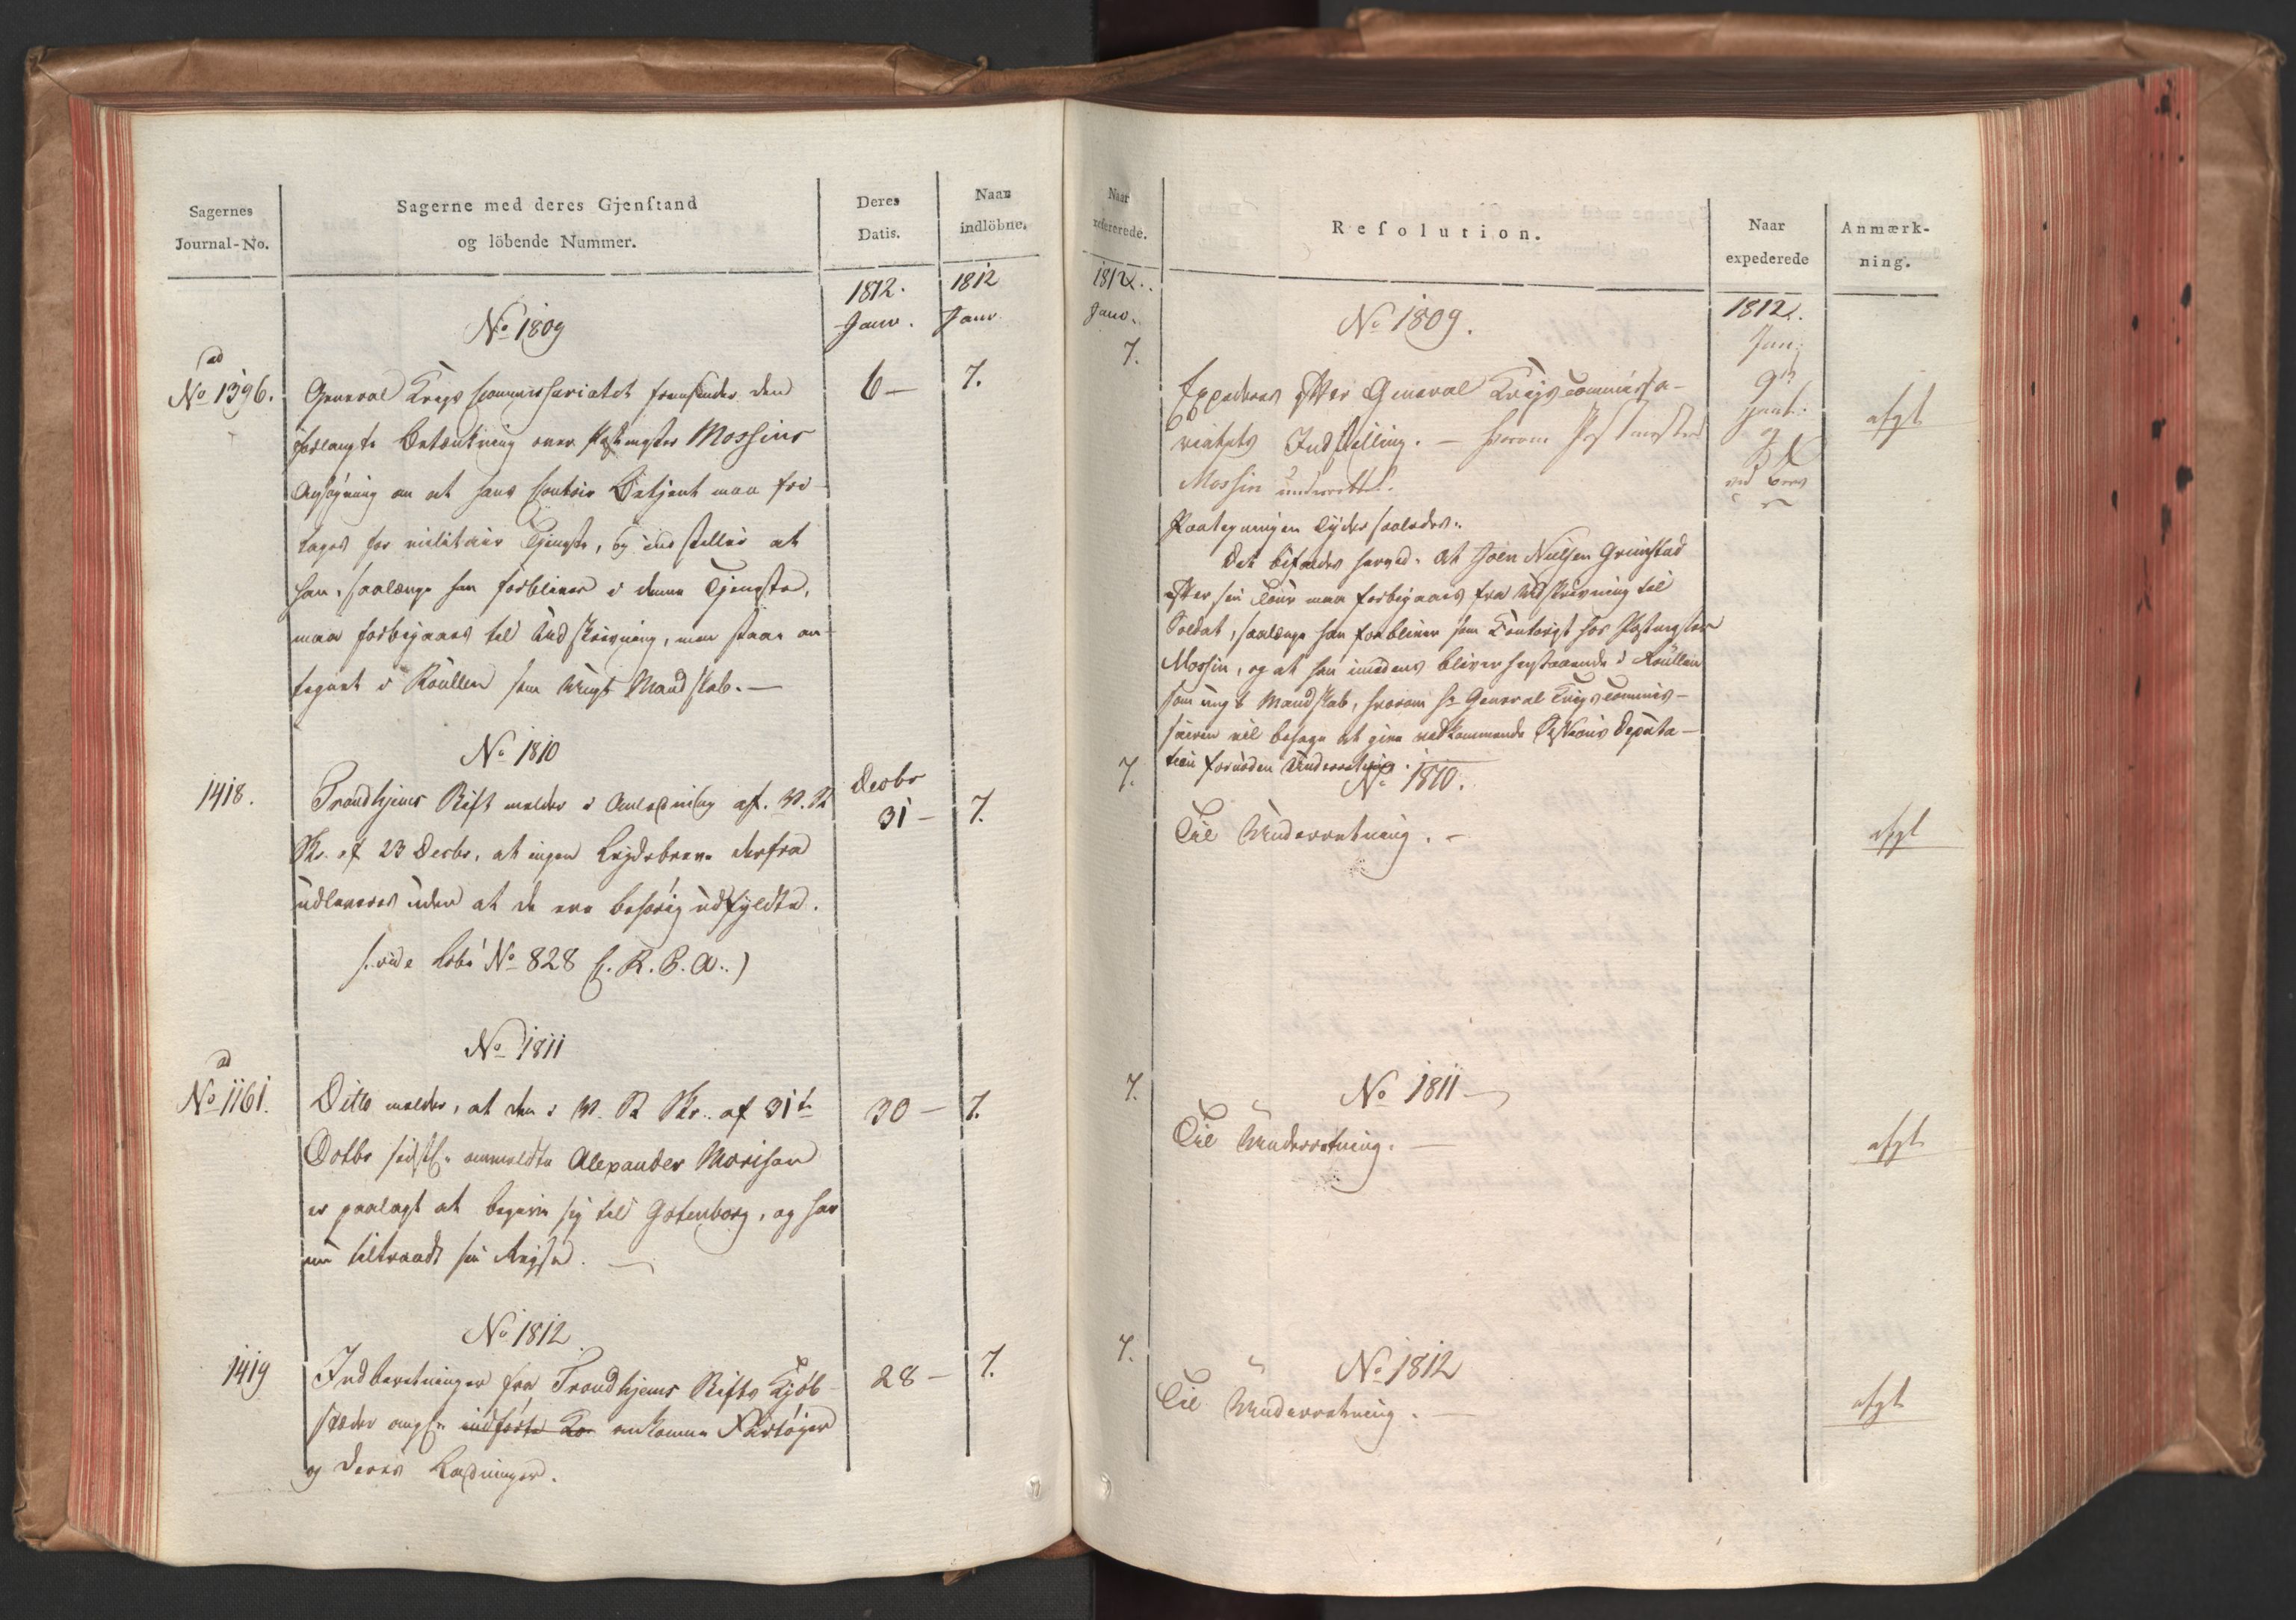 Sagernes
Journal-No.
Sagerne med deres Gjenstand
og löbende Nummer.
Deres
Datis.
Naar
indlöbne.
1812.
Janv.
1812
Janv.
No 1809
ad
No 1396.
General Krigs Commissariatet fremsender den
6 –
7.
forlangte Betænkning over Postmester Mossins
Ansøgning om at hans Contoir Betjent maa fri-
tages for militair Tjeneste, og indstiller at
han, saalænge han forbliver i denne Tjeneste,
maa forbigaaes til Udskrivning, men staae an-
tegnet i Roullen som Ungt Mandskab. —
No 1810
1418.
Trondhjems Stift melder i Anledning af. W. R
Decbr
31 –
7.
Skr. af 23 Decbr. at ingen Leydebreve derfra
udleveres uden at de ere behørig udfyldte.
(: vide Lobe No 828 C. R. B. A..)
No 1811
ad
No 1161.
Ditto melder, at den i W. R Skr. af 31te
30 –
7.
Octbr sidstl. anmeldte Alexander Morison
er paalagt at begive sig til Gotenborg, og har
nu tiltraadt sin Reyse. —
No 1812
1419
Indberetninger fra Trondhjems Stifts Kjöb-
28 –
7.
stæder angl. indførte Ko ankomne Fartøyer
og deres Ladninger.
Naar
refererede.
Resolution.
Naar
expederede
Anmærk-
ning.
1812..
Janv.
1812.
Jan:
No 1809.
7.
Expederes efter General Krigscommissa-
9de
riatets Indstilling. — hvorom Postmester
og
afgt
Mossin underrettes.
ved Brev
Paategningen lyder saaledes:
Det bifaldes herved: At Joen Nielsen Grimstad
efter sin Tour maa forbigaaes fra Udskrivning til
Soldat, saalænge han forbliver som Contorist hos Postmester
Mossin, og at han imedens bliver henstaaende i Roullen
som ungt Mandskab, hvorom Hr General Krigscommis-
sairen vil behage at give vedkommende Sessions Deputa-
tion fornöden Underretning.
7.
No 1810.
Til Underretning. –
afgt
7.
No 1811 –
Til Underretning. —
afgt
7.
No 1812
Til Underretning. —
afgt